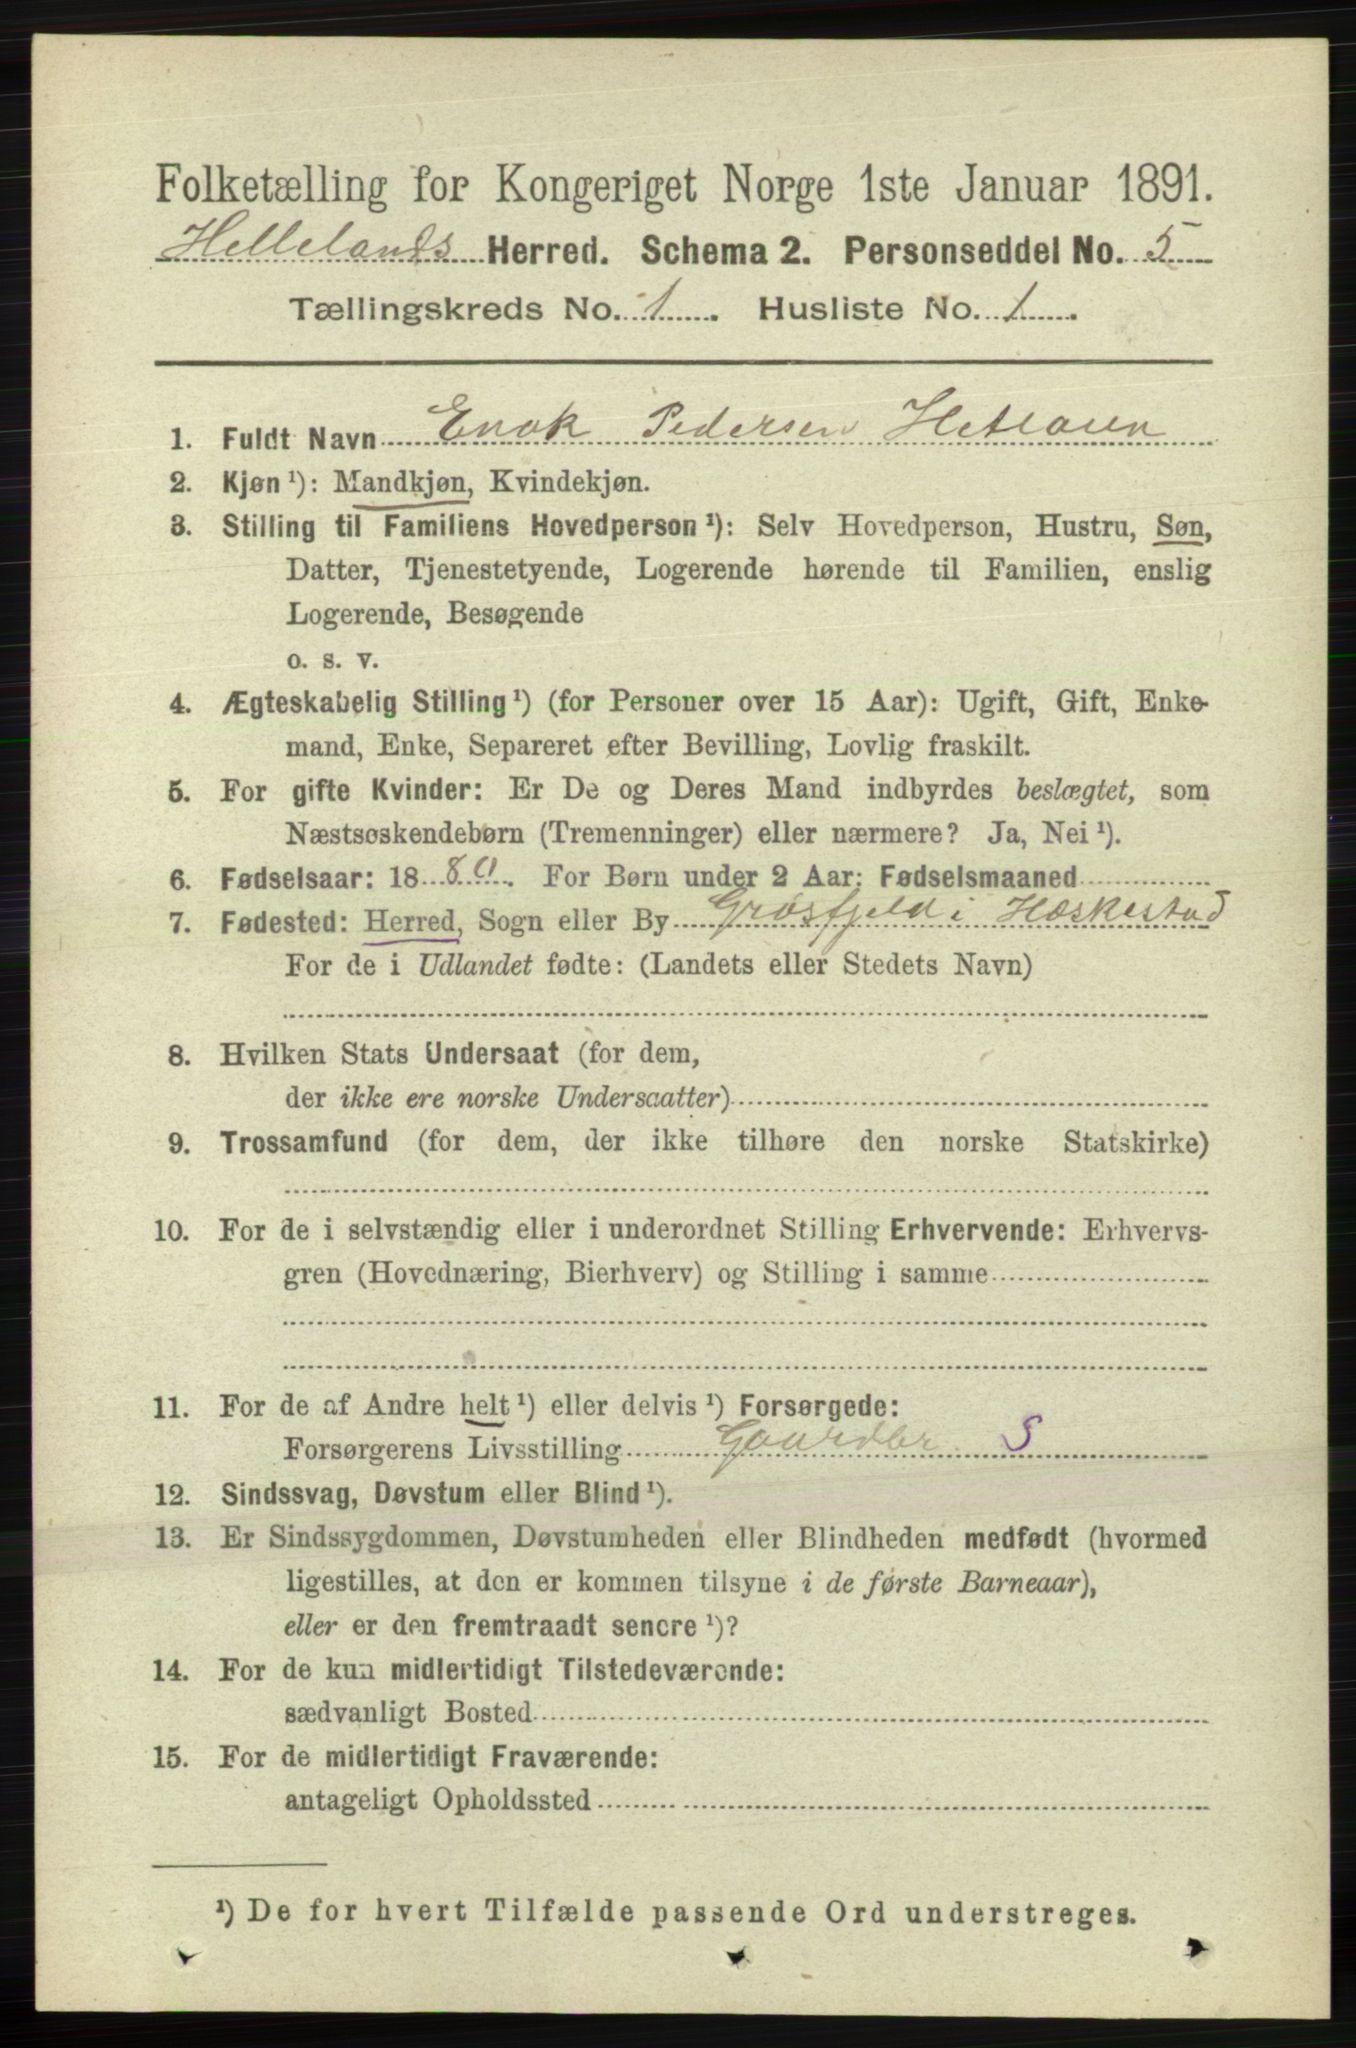 Folketælling for Kongeriget Norge 1ste Januar 1891.
Hellelands Herred. Schema 2. Personseddel No. 5
Tællingskreds No. 1. Husliste No. 1.
1. Fuldt Navn Enok Pedersen Hetland
2. Kjøn ¹): Mandkjøn, Kvindekjøn.
3. Stilling til Familiens Hovedperson ¹): Selv Hovedperson, Hustru, Søn,
Datter, Tjenestetyende, Logerende hørende til Familien, enslig
Logerende, Besøgende
o. s. v.
4. Ægteskabelig Stilling ¹) (for Personer over 15 Aar): Ugift, Gift, Enke-
mand, Enke, Separeret efter Bevilling, Lovlig fraskilt.
5. For gifte Kvinder: Er De og Deres Mand indbyrdes beslægtet, som
Næstsøskendebørn (Tremenninger) eller nærmere? Ja, Nei ¹).
6. Fødselsaar: 1880. For Børn under 2 Aar: Fødselsmaaned
7. Fødested: Herred, Sogn eller By Grøsfjeld i Hæskestad
For de i Udlandet fødte: (Landets eller Stedets Navn)
8. Hvilken Stats Undersaat (for dem,
der ikke ere norske Undersaatter)
9. Trossamfund (for dem, der ikke tilhøre den norske Statskirke)
10. For de i selvstændig eller i underordnet Stilling Erhvervende: Erhvervs-
gren (Hovednæring, Bierhverv) og Stilling i samme
11. For de af Andre helt ¹) eller delvis ¹) Forsørgede:
Forsørgerens Livsstilling Gaardbr S
12. Sindssvag, Døvstum eller Blind ¹).
13. Er Sindssygdommen, Døvstumheden eller Blindheden medfødt (hvormed
ligestilles, at den er kommen tilsyne i de første Barneaar),
eller er den fremtraadt senere ¹)?
14. For de kun midlertidigt Tilstedeværende:
sædvanligt Bosted
15. For de midlertidigt Fraværende:
antageligt Opholdssted
¹) De for hvert Tilfælde passende Ord understreges.